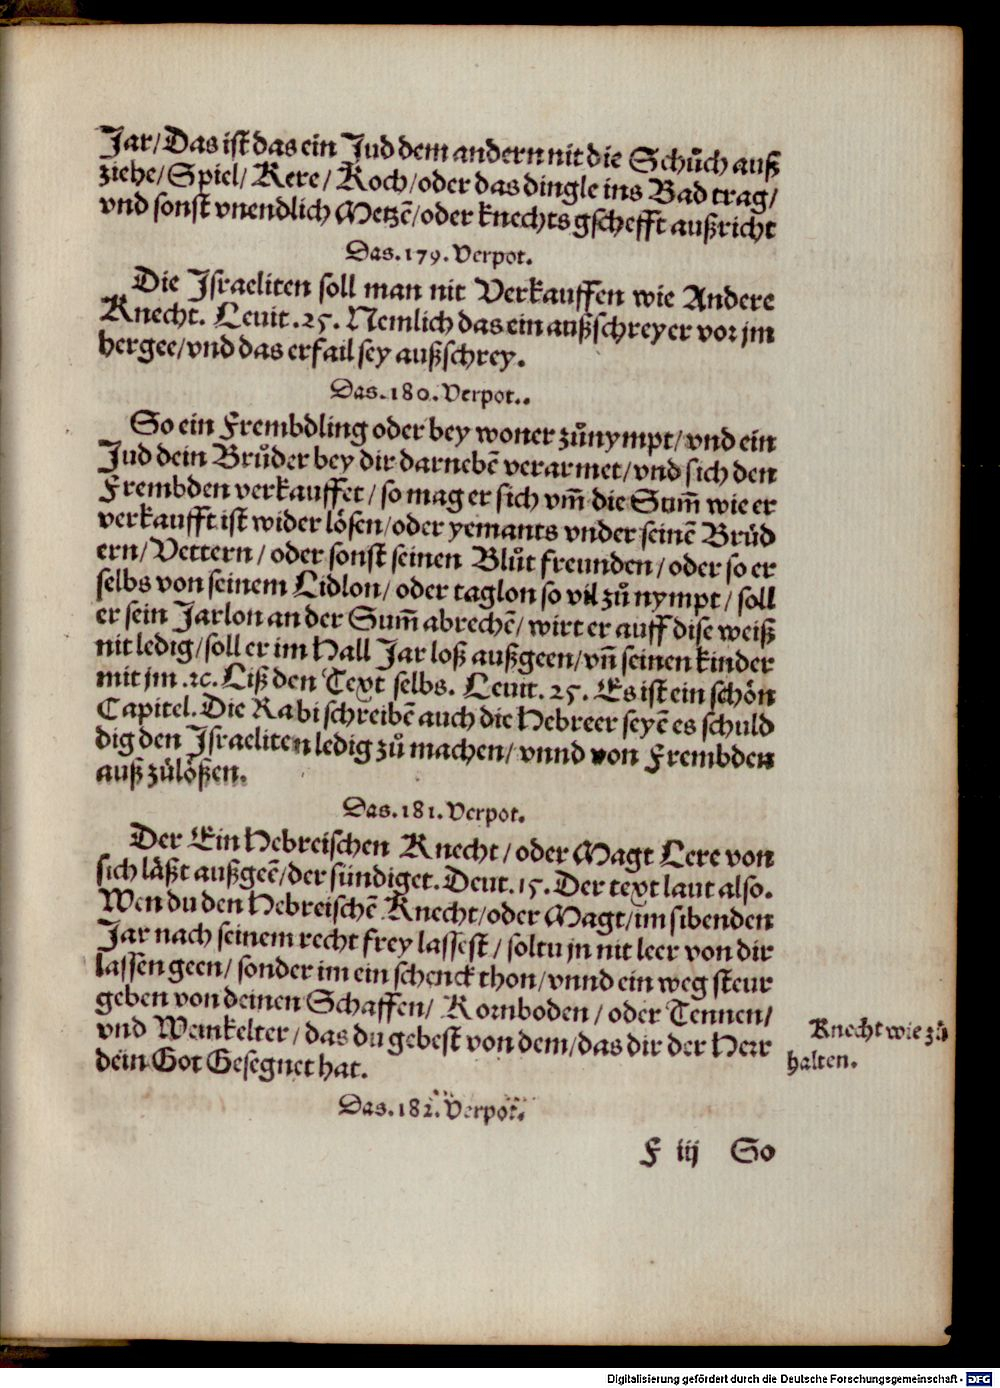 Jar/Das ist das ein Jud dem andern nit die Schůch auß
ziehe/Spiel/ Kere/ Koch/oder das dingle ins Bad trag/
vnd sonst vnendlich Metzē/oder knechts gschefft außricht
Das.179.Verpot.
Die Israeliten soll man nit Verkauffen wie Andere
Knecht. Leuit.25. Nemlich das ein außschreyer vor jm
hergee/vnd das er fail sey außschrey.
Das.180.Verpot..
So ein Frembdling oder bey woner zůnympt/vnd ein
Jud dein Brůder bey dir darnebē verarmet/vnd sich den
Frembden verkauffet/so mag er sich vm̄ die Sum̄ wie er
verkaufft ist wider lösen/oder yemants vnder seinē Brůd
ern/Vettern/ oder sonst seinen Blůt freunden/oder so er
selbs von seinem Lidlon/oder taglon so vil zů nympt/soll
er sein Jarlon an der Sum̄ abrechē/wirt er auff dise weiß
nit ledig/soll er im Hall Jar loß außgeen/vn̄ seinen kinder
mit jm .ꝛc. Liß den Text selbs. Leuit. 25. Es ist ein schön
Capitel. Die Rabi schreibē auch die Hebreer seyē es schuld
dig den Israeliten ledig zů machen/ vnnd von Frembden
auß zůlößen.
Das.181.Verpot.
Der Ein Hebreischen Knecht/oder Magt Lere von
sich läßt außgeē/der sündiget. Deut.15. Der text laut also.
Wen du den Hebreischē Knecht/oder Magt/im sibenden
Jar nach seinem recht frey lassest/ soltu jn nit leer von dir
lassen geen/ sonder im ein schenck thon/vnnd ein weg steur
geben von deinen Schaffen/ Kornboden/oder Tennen/
vnd Weinkelter/das du gebest von dem/das dir der Herr
dein Got Gesegnet hat.
Knecht wie zů
halten.
Das.182.Verpot.
F iij So
Digitalisierung gefördert durch die Deutsche Forschungsgemeinschaft - DFG